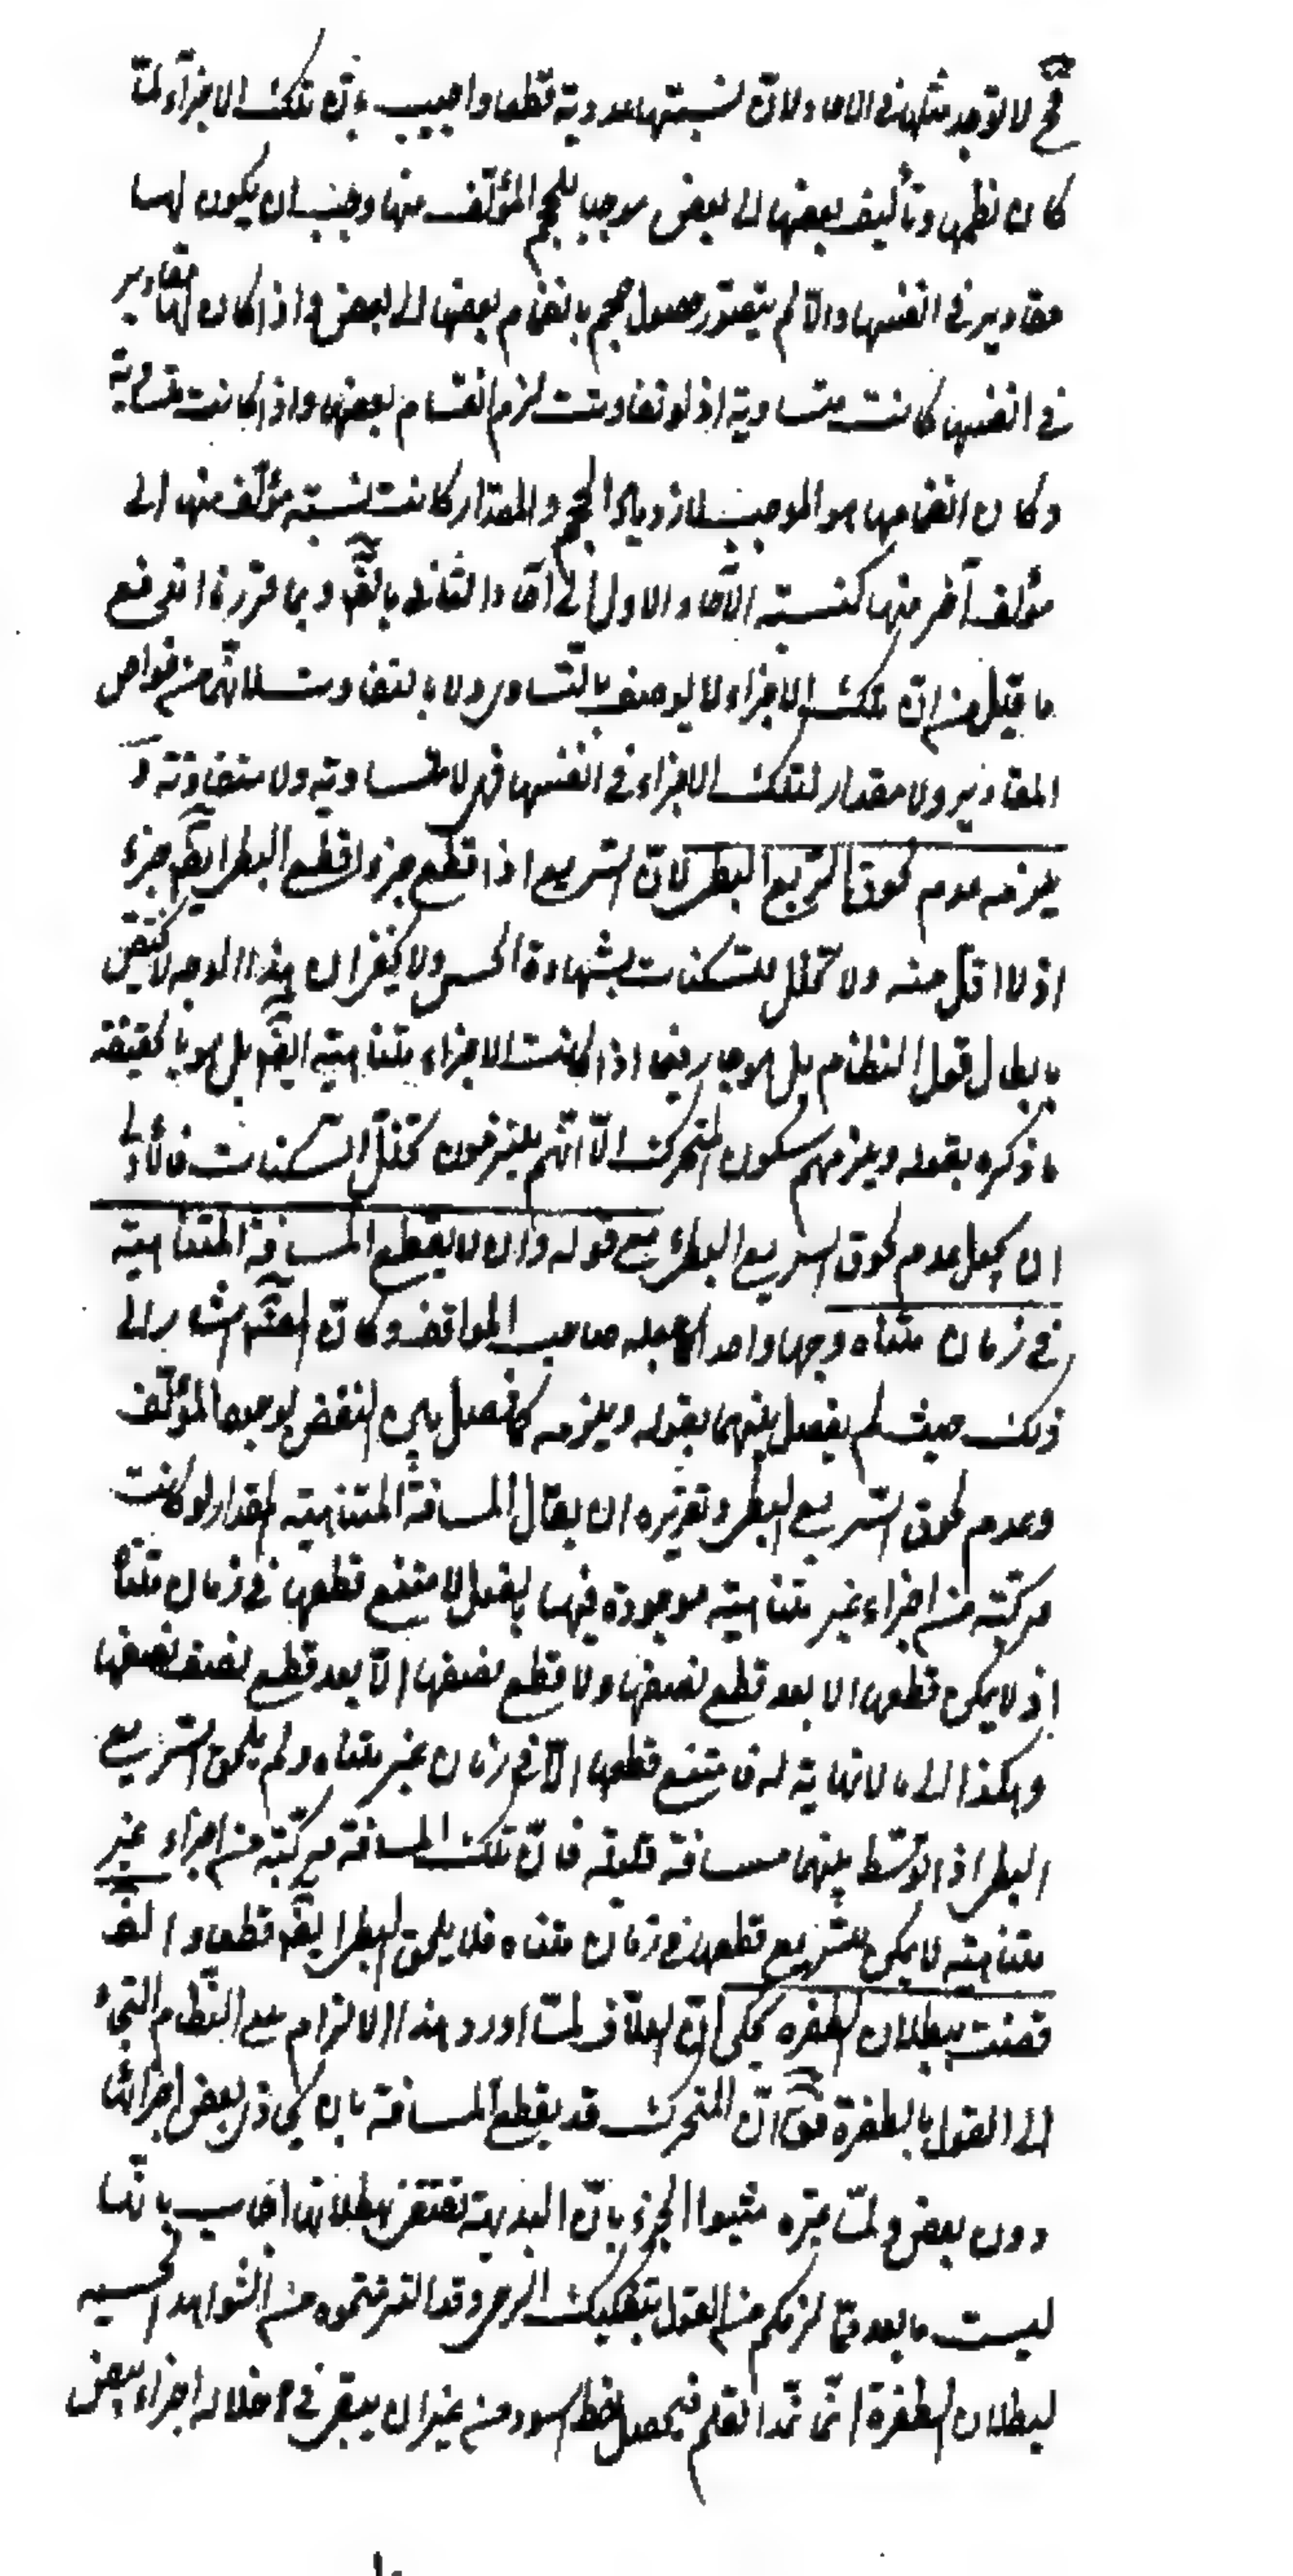 فح لا توجد مثلها فى الآحاد ولا ان نسبتها عددية قطعا واجيب بان تلك الاجزاء لما
كان نظمها وتأليف بعضها الى بعض موجبا للحجم المؤلف منها وجب ان يكون لها
مقادير فى انفسها والا لم يتصور حصول حجم بانضمام بعضها الى بعض واذا كان لها مقادير
فى انفسها كانت متساوية اذ لو تفاوتت لزم انقسام بعضها واذا كانت متساوية
وكان انضمامها هو الموجب لازدياد الحجم والمقدار كانت نسبة مؤلف منها الى
مؤلف آخر منها كنسبة الآحاد الاول الى آحاد الثانى بالضم وبما قررنا اندفع
ما قيل من ان تلك الاجزاء لا يوصف بالتساوى ولا بالتفاوت لانهما من خواص
المقادير ولا مقدار لتلك الاجزاء فى انفسها فهى لا متساوية ولا متفاوتة و
يلزمه عدم لحوق السريع البطئ لان السريع اذا قطع جزءا قطع البطئ ايضا جزء
اذ لا اقل منه ولا تخلل للسكنات بشهادة الحس ولا يخفى ان هذا الوجه لا يختص
بابطال قول النظام بل هو جار فيما اذا كانت الاجزاء متناهية ايضا بل هو بالحقيقة
ما ذكره بقوله ويلزمهم سكون المتحرك الا انهم يلتزمون تخلل السكنات فالاولى
ان يجعل عدم لحوق السريع البطئ مع قوله وان لا يقطع المسافة المتناهية
فى زمان متناه وجها واحدا كما جعله صاحب المواقف وكان المصنف اشار الى
ذلك حيث لم يفصل بينهما بقوله ويلزمه كما فصل بين النقض بوجود المؤلف
وعدم لحوق السريع البطئ وتقريره ان يقال المسافة المتناهية المقدار لو كانت
مركبة من اجزاء غير متناهية موجودة فيها بالفعل لامتنع قطعها فى زمان متناه
اذ لا يمكن قطعها الا بعد قطع نصفها ولا قطع نصفها الا بعد قطع نصف نصفها
وهكذا الى ما لا نهاية له فامتنع قطعها الا فى زمان غير متناه ولم يلحق السريع
البطئ اذا توسط بينهما مسافة قليلة فان تلك المسافة مركبة من اجزاء غير
متناهية لا يمكن للسريع قطعها فى زمان متناه فلا يلحق البطئ ايضا قطعا والضرورة
قضت ببطلان الطفرة يحكى ان العلاف لما اورد هذا الالزام مع النظام التجأ
الى القول بالطفرة فقال ان المتحرك قد يقطع المسافة بان يحاذى بعض اجزائها
دون بعض ولما عيره مثبتوا الجزء بان البديهة تقتضى ببطلانها اجاب بانها
ليست ما بعد مما لزمكم من القول بتفكيك الرحى وقد التزمتموه من الشواهد الحسية
لبطلان الطفرة انا نمد القلم فيحصل خط اسود من غير ان يبقى فى خلاله اجزاء بيض